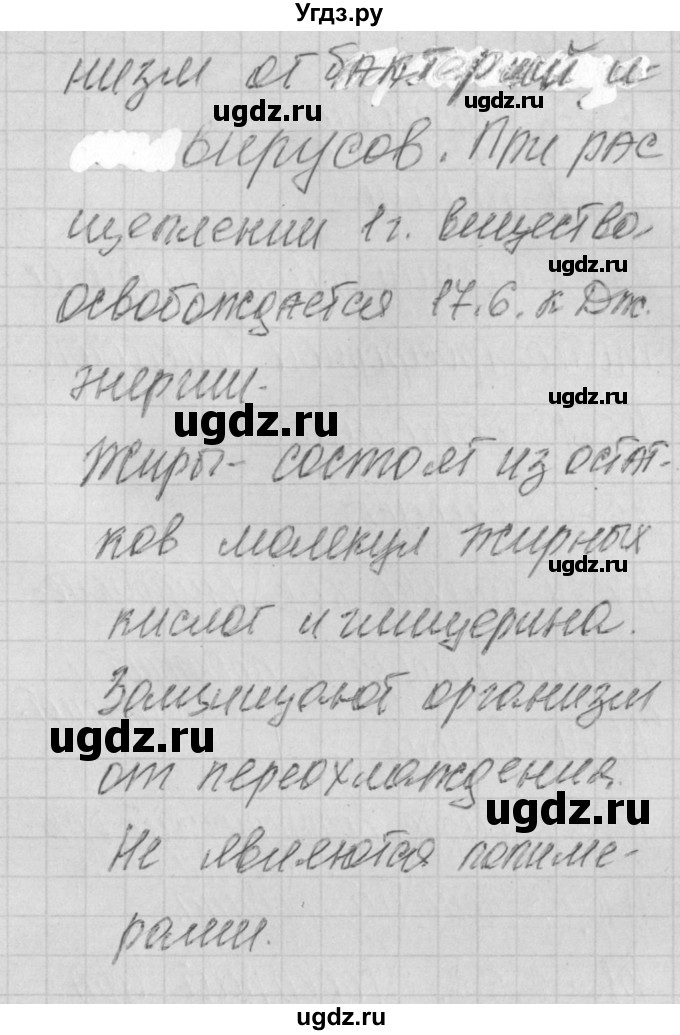 Угдз.ру
низм от бактерий и
ugdz.ru
вирусов. При рас
щеплении 1г. вещества
ugdz.ru
освобождается 17.6. кДж.
энергии.
ugdz.ru
ugdz.ru
Жиры- состоят из остат-
ков молекул жирных
ugdz.ru
кислот и глицерина.
Защищают организм
ugdz.ru
от переохлаждения.
ugdz.ru
Не являются полиме-
рами.
ugdz.ru